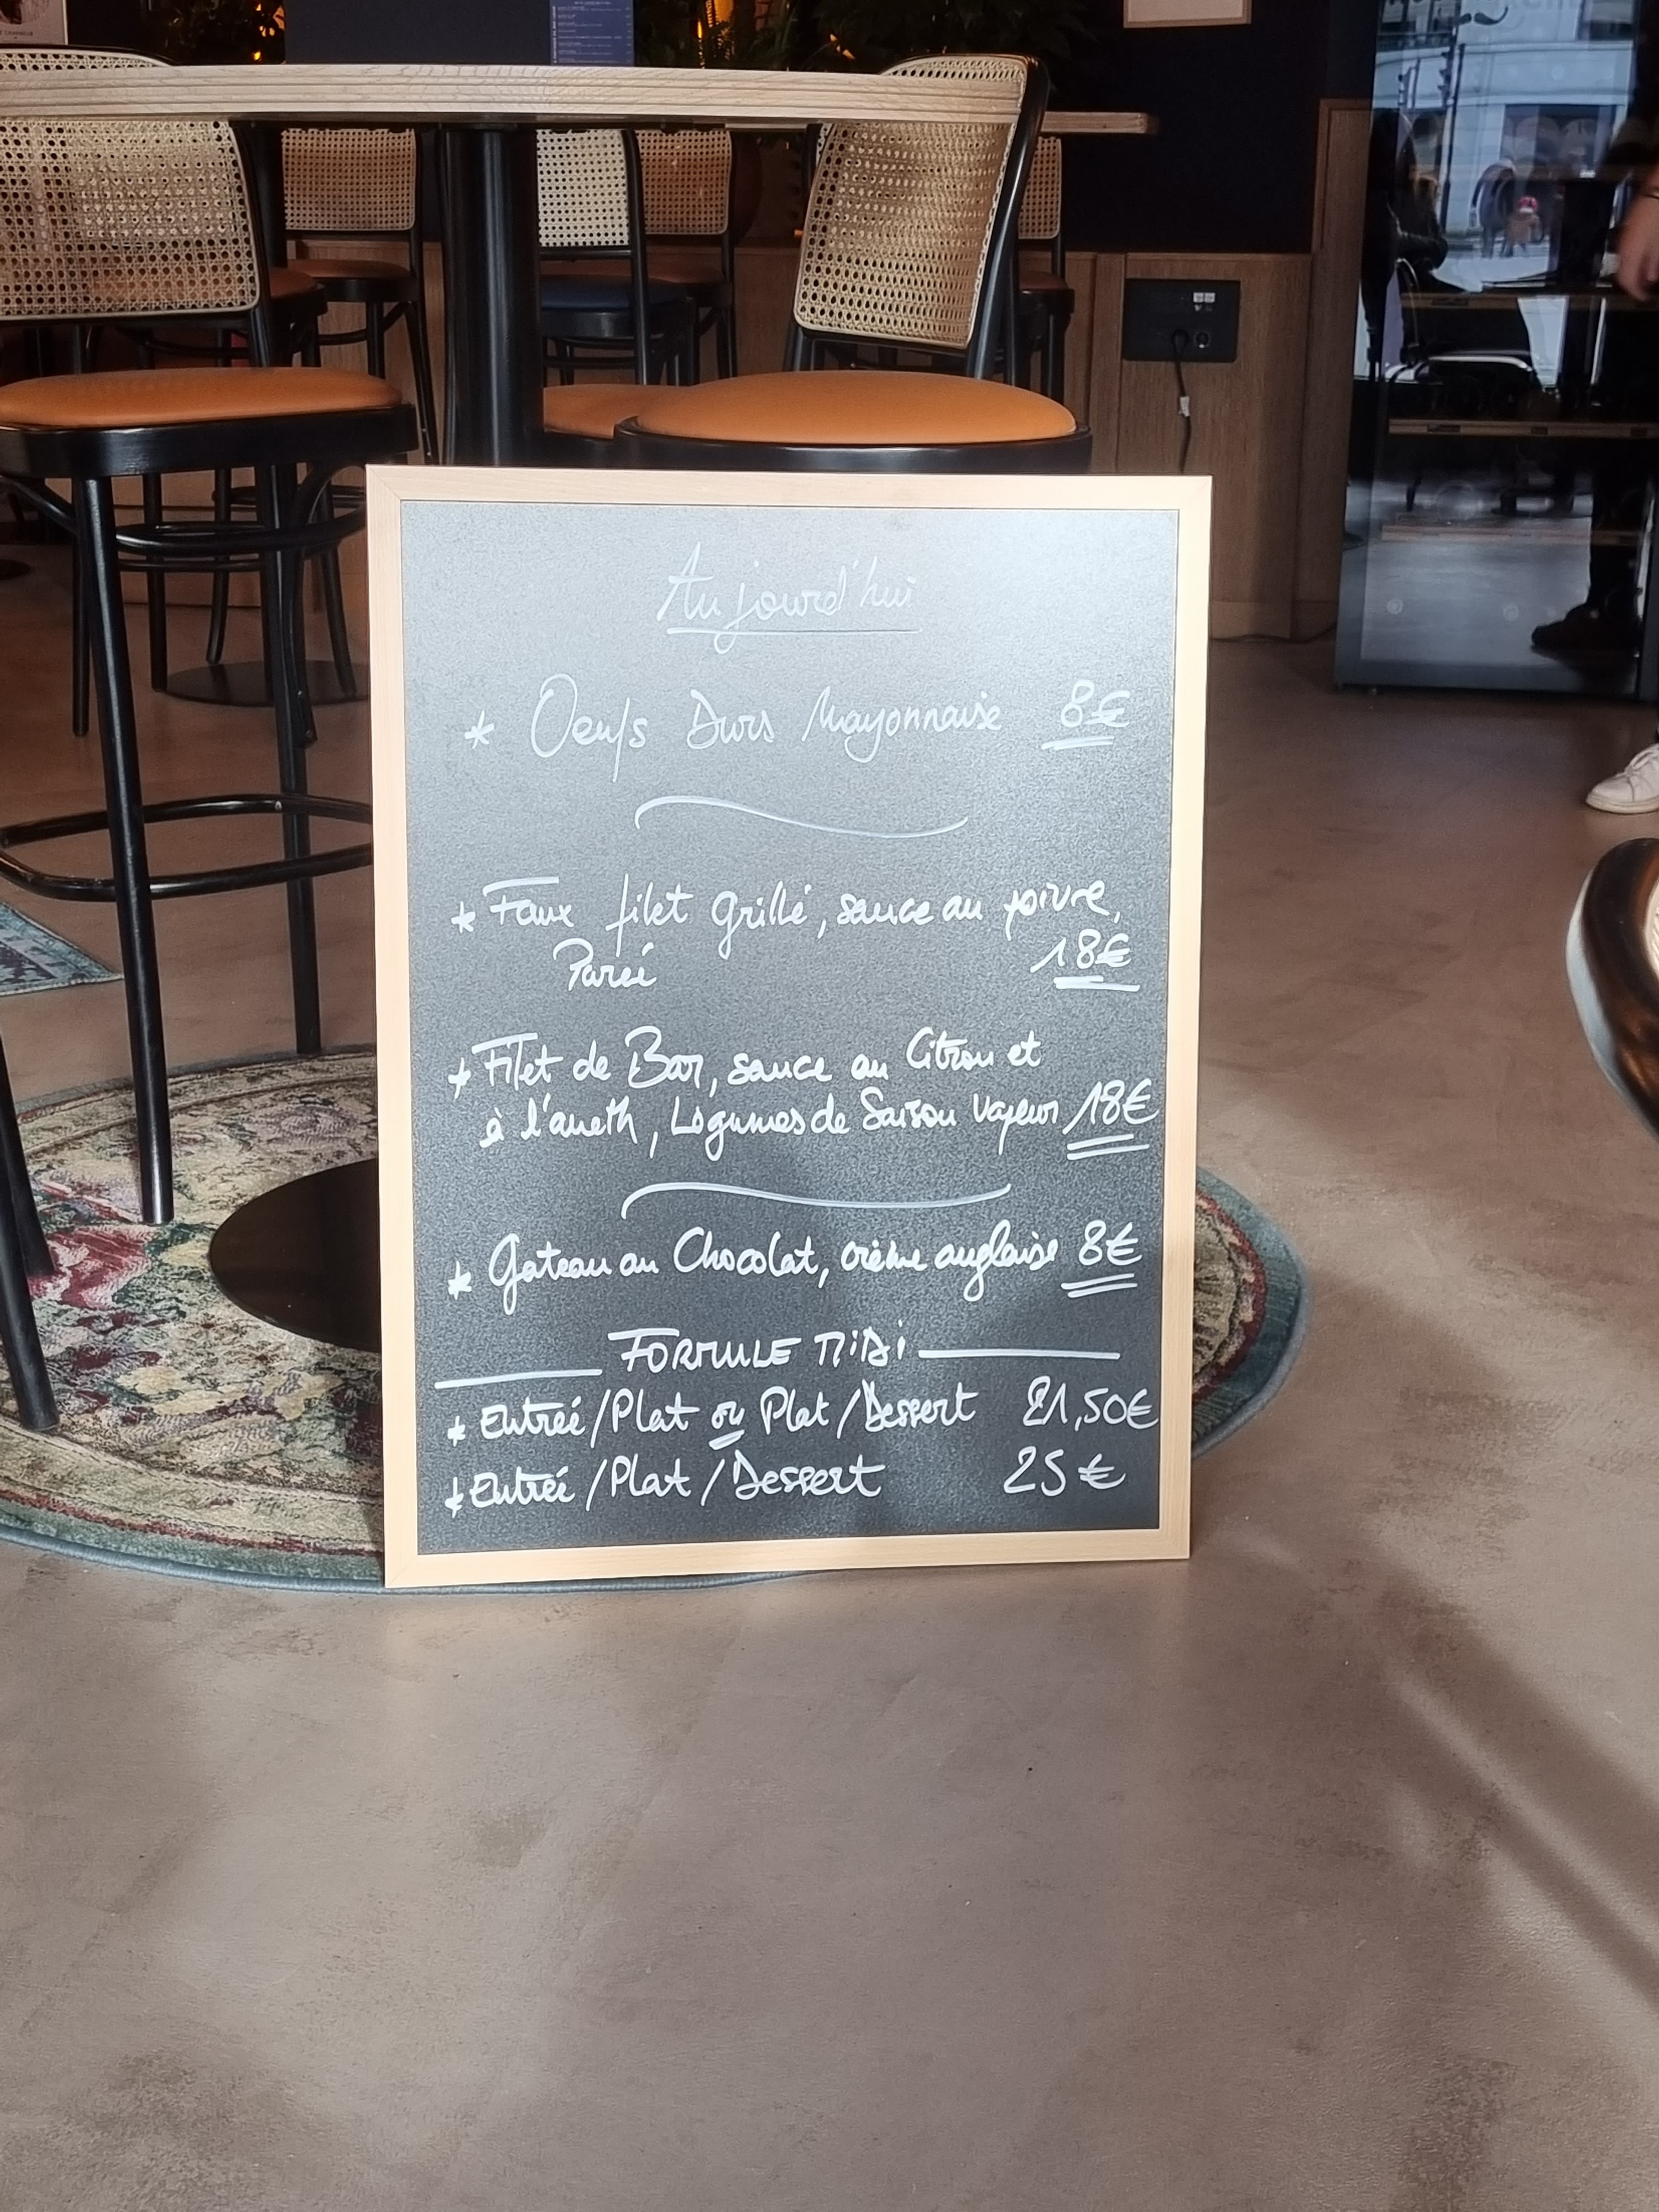 Aujourd'hui
* Oeufs Durs Mayonnaise 8€
* Faux filet grillé, sauce au poivre,
18€
* Filet de Bar, sauce au Citron et
à l'aneth, Légumes de Saison vapeur 18€
* Gateau au Chocolat, crème anglaise 8€
FORMULE MIDI
* Entrée/Plat ou Plat/Dessert 21,50€
* Entrée/Plat/Dessert 25€